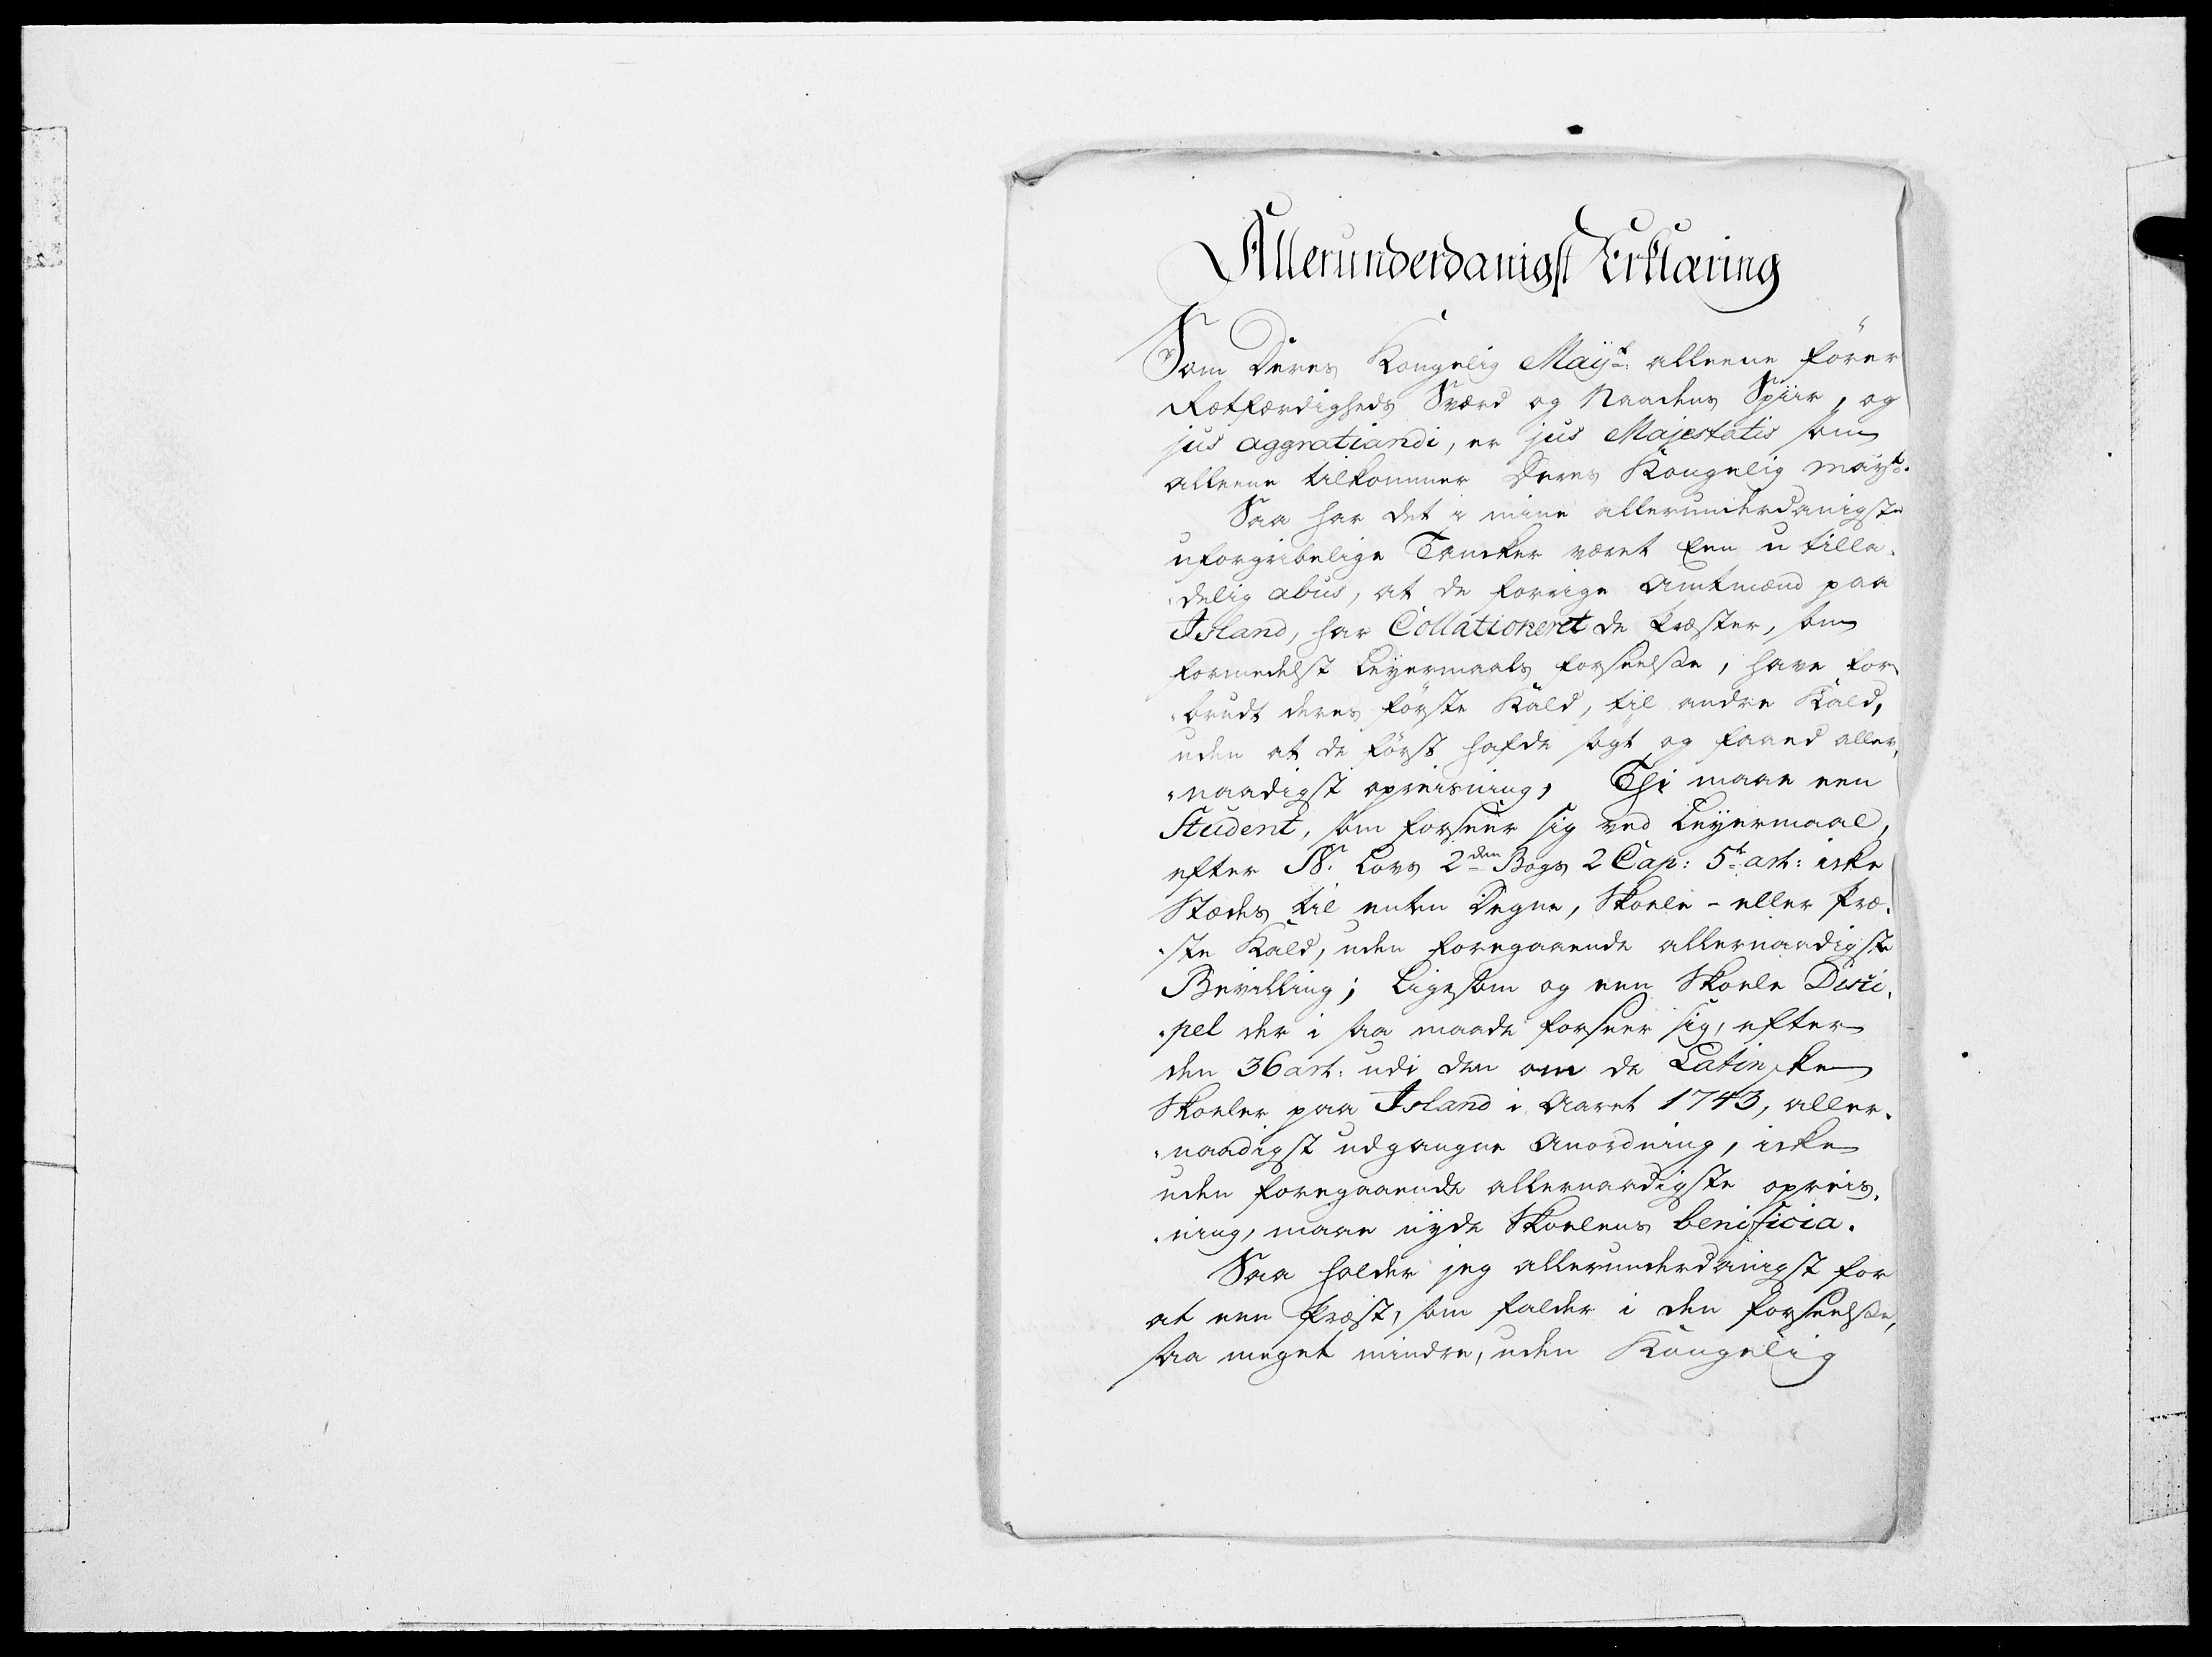 Allerunderdanigst Erklæring
Som Deres Kongelig Mayt: alleene förer
Retfærdigheds Sværd og Naadens Spiir, og
jus aggratiandi, er jus Majestatis som
alleene tilkommer Deres Kongelig Mayt.
Saa har det i mine allerunderdanigste
uforgribelige Tancker været Een u tilla-
delig abus, at de forrige Amtmænd paa
Island, har Collationeret de Præster, som
formedelst Leyermaals forseelsse, have for-
brudt deres förste Kald, til andre Kald,
uden at de först hafde sögt og faaed aller-
naadigst opreisning, Thi maae een
Student, som forseer sig ved Leyermaal,
efter N: Lovs 2den Bogs 2 Cap: 5t art: icke
Stædes til enten Degne, Skoele - eller Præ-
ste Kald, uden foregaaende allernaadigste
Bevilling; Ligesom og een Skoele Disci-
pel der i saa maade forseer sig, efter
den 36 art: udi den om de Latinske
Skoeler paa Island i Aaret 1743, aller-
naadigst udgangne Anordning, icke
uden foregaaende allernaadigste opreis-
ning, maae nyde Skoelens benificia.
Saa holder jeg allerunderdanigst for
at een Præst, som falder i den forseelsse,
saa meget mindre, uden Kongelig